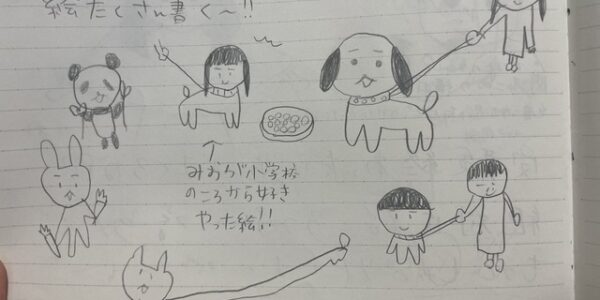 絵たくさん書く〜!!
↑
みおちが小学校
のころから好き
やった絵!!